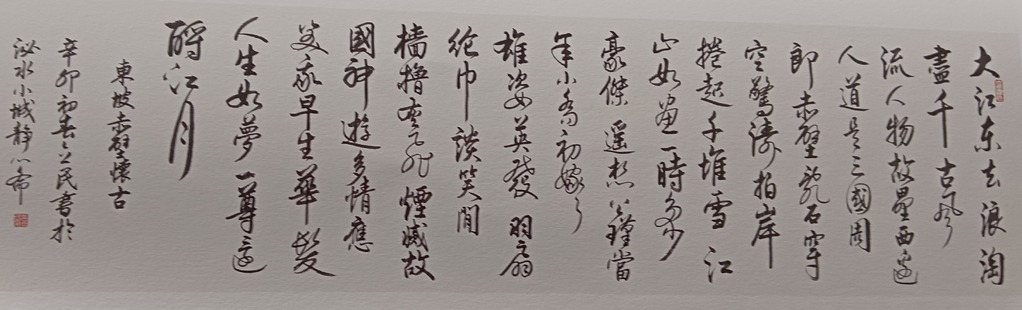 大江东去浪淘
盡千古風
流人物故壘西邊
人道是三國周
郎赤壁亂石穿
空驚濤拍岸
捲起千堆雪江
山如畫一時多少
豪傑遙想公瑾當
年小喬初嫁了
雄姿英發羽扇
綸巾談笑間
檣櫓灰飛煙滅故
國神遊多情應
笑我早生華髮
人生如夢一尊還
酹江月
東坡赤壁懷古
辛卯初春民書於
泌水小城靜心齋